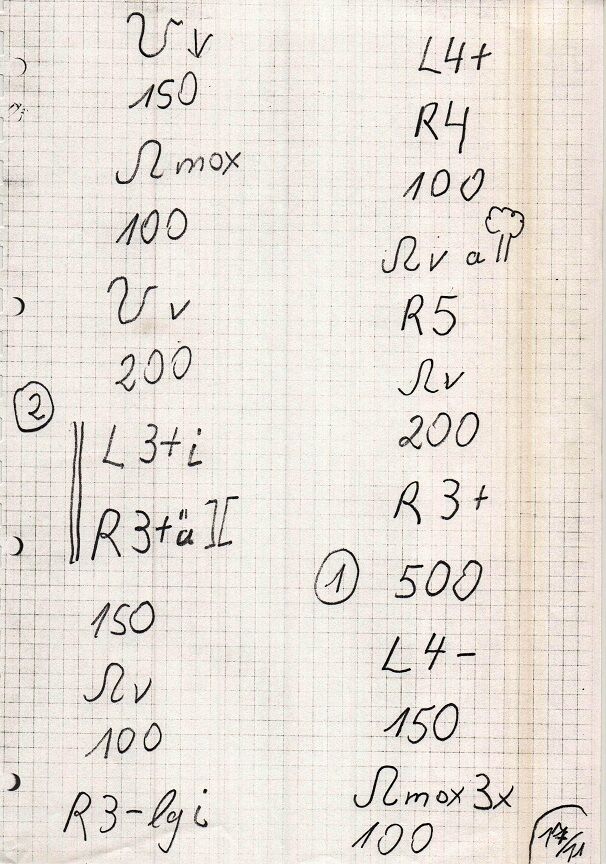 v
150
Ω mox
100
v
200
2
L 3+ i
R 3+ ä ][
150
Ω v
100
R 3- lg i
L4+
R4
100
Ω v a
R5
Ω v
200
R 3+
1 500
L 4-
150
Ω mox 3x
100